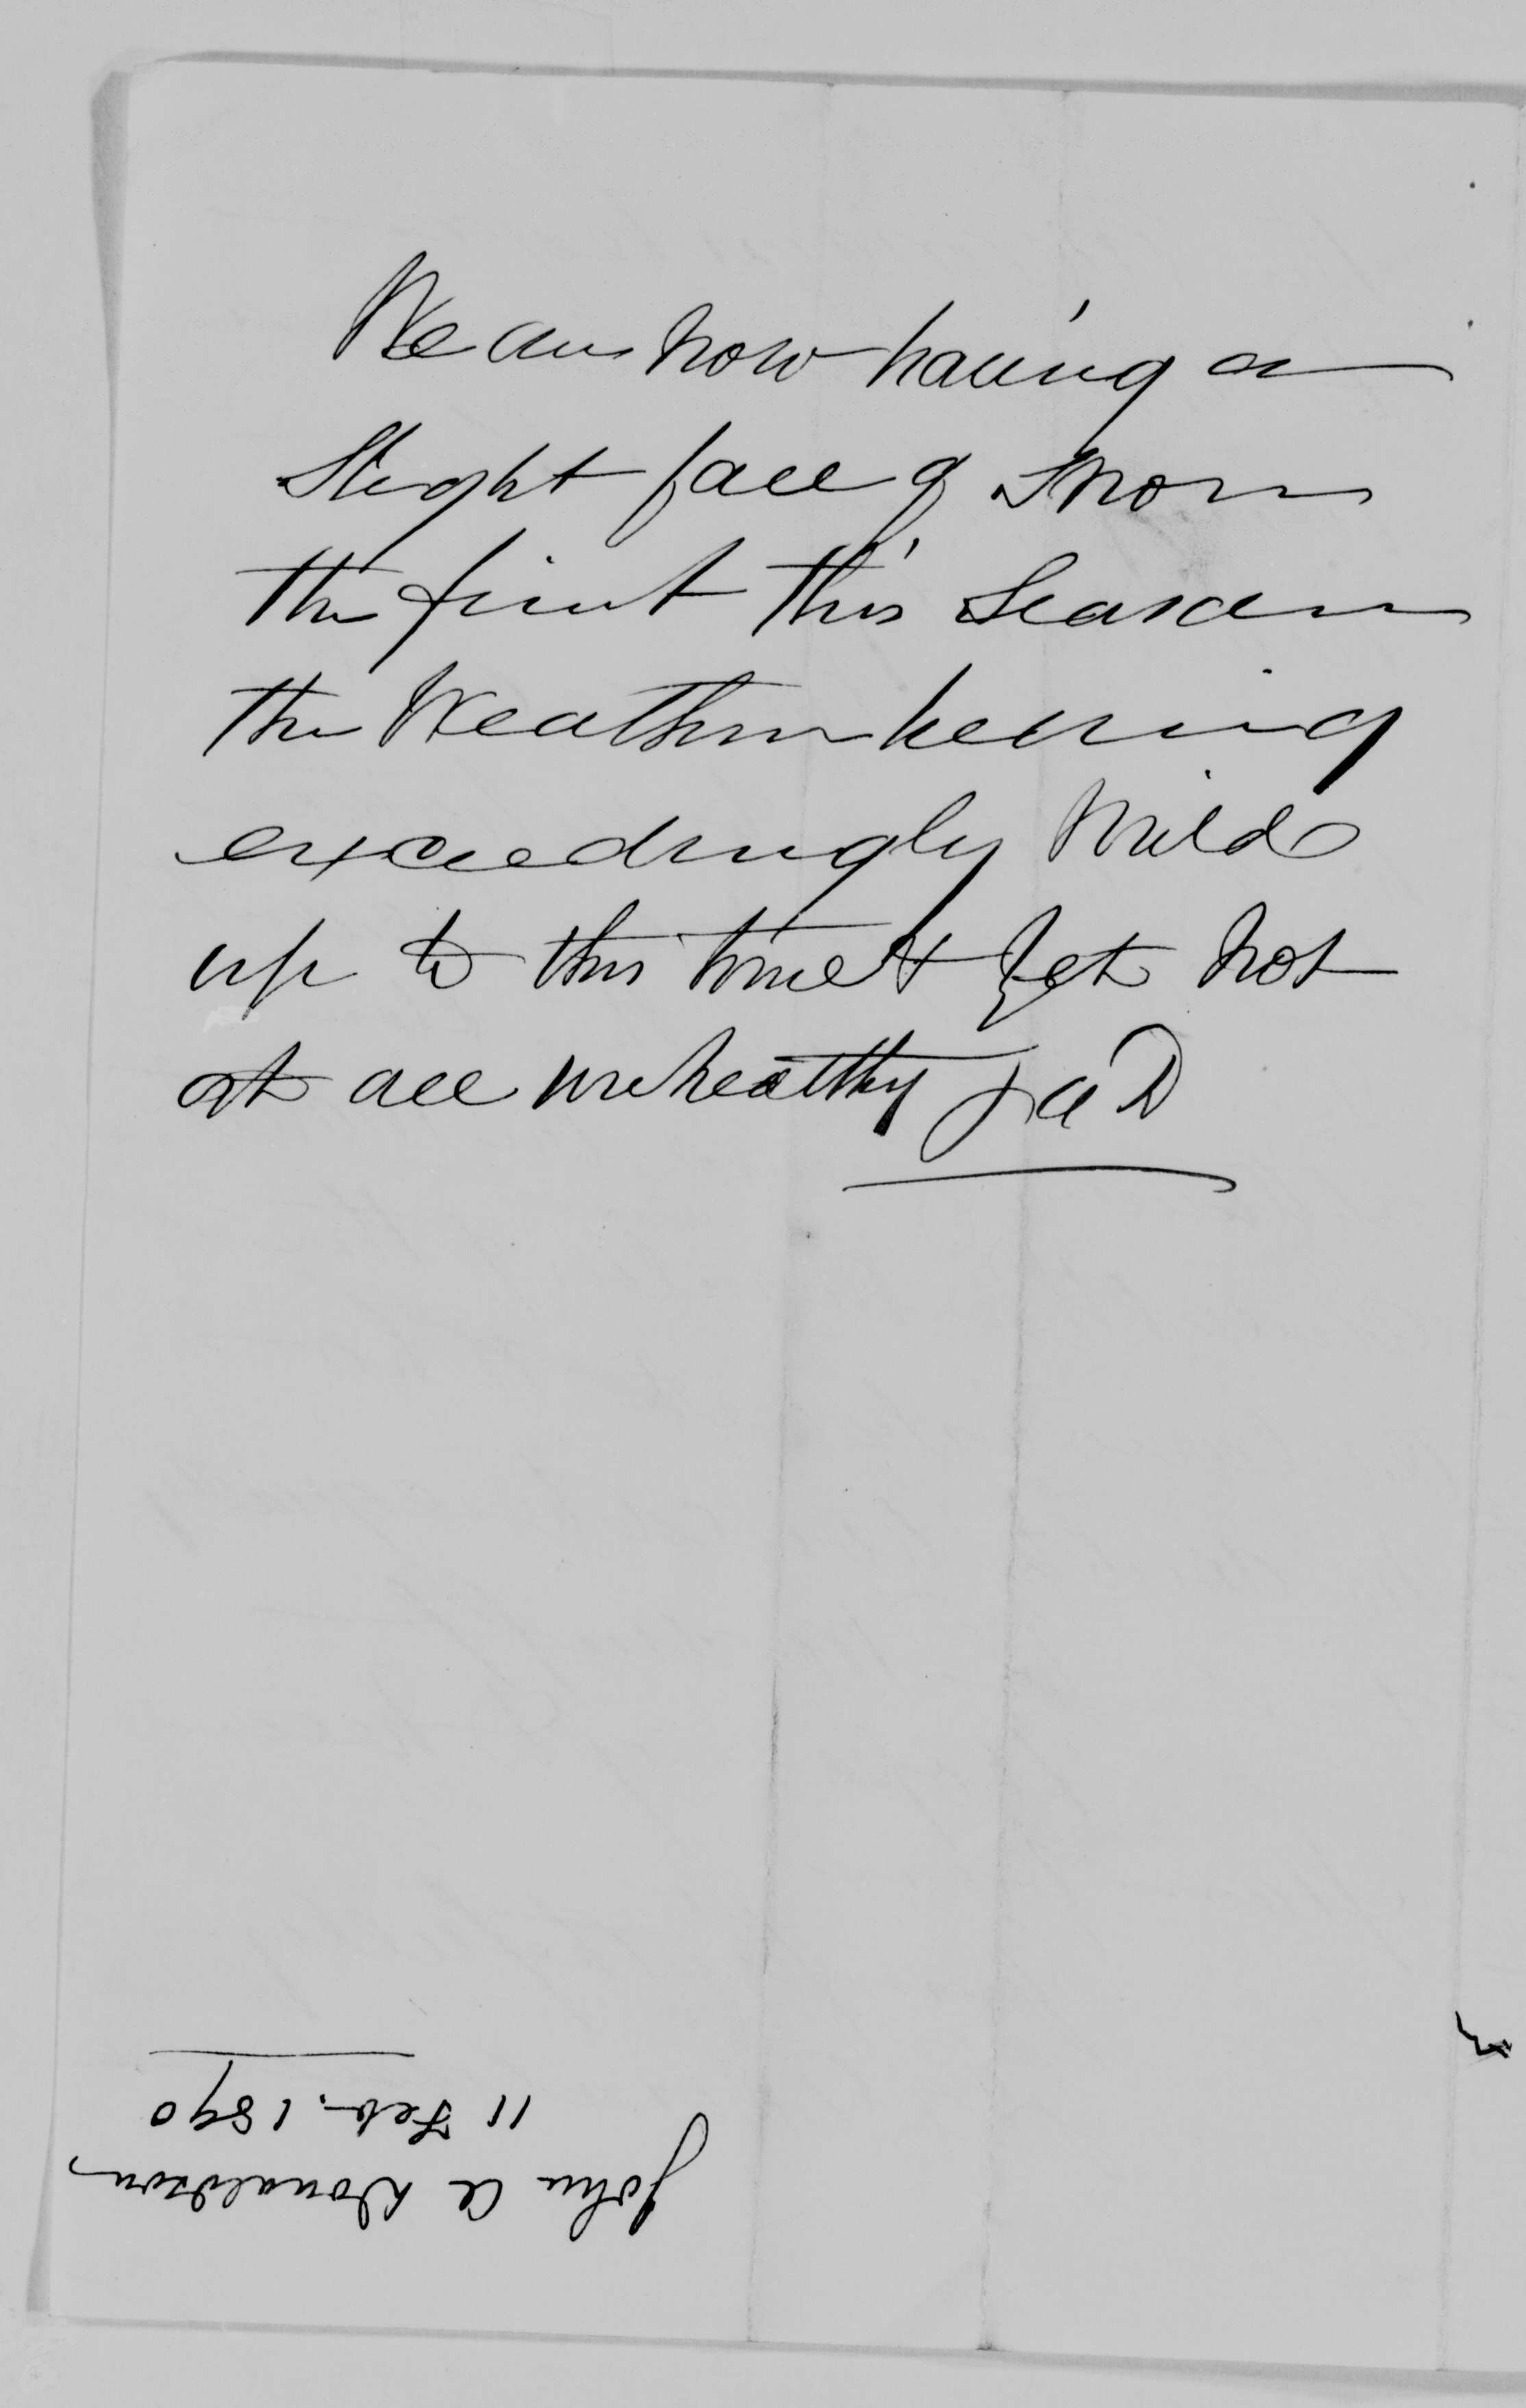 We are now having a
Slight fall of Snow
the first this Season
the Weather being
exceedingly Mild
up to this time & Yet not
at all unhealthy J A D
John A Donaldson,
11 Feb. 1890